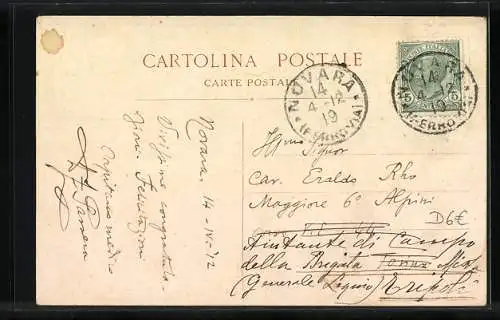 CARTOLINA POSTALE
CARTE POSTALE
NOVARA
14
4-12
19
(FERROVIA)
NOVARA
14
4
19
(FERROVIA)
5
5
Novara. 14-IV-12
Vivissime congratulazioni. Felicitazioni
Capitano medico
Signor
Cav. Eraldo Rho
Maggiore 6º Alpini
Aiutante di Campo
della Brigata
(Generale Lequio) Tripoli
D6€